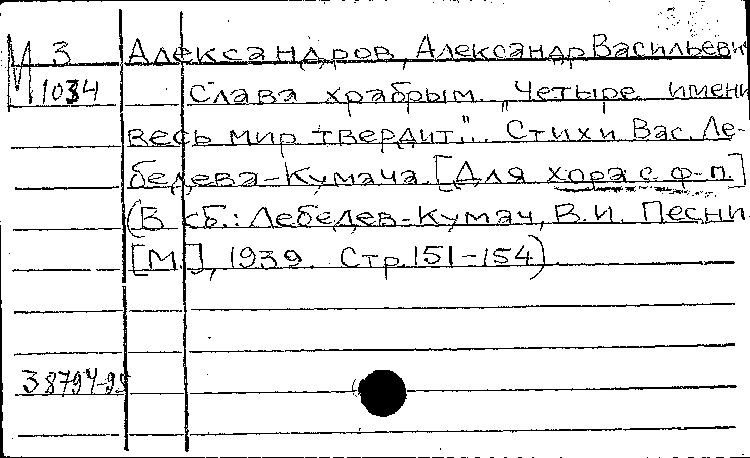 И 3 Александров, Александр Васильеви
1034 Слава храбрым. „Четыре имени
весь мир твердит."... Стихи Вас. Ле-
бедева-Кумача. [Для хора с ф-п.]
(В сб.: Лебедев-Кумач, В.И. Песни.
[М.], 1939. Стр. 151-154).
38794-95